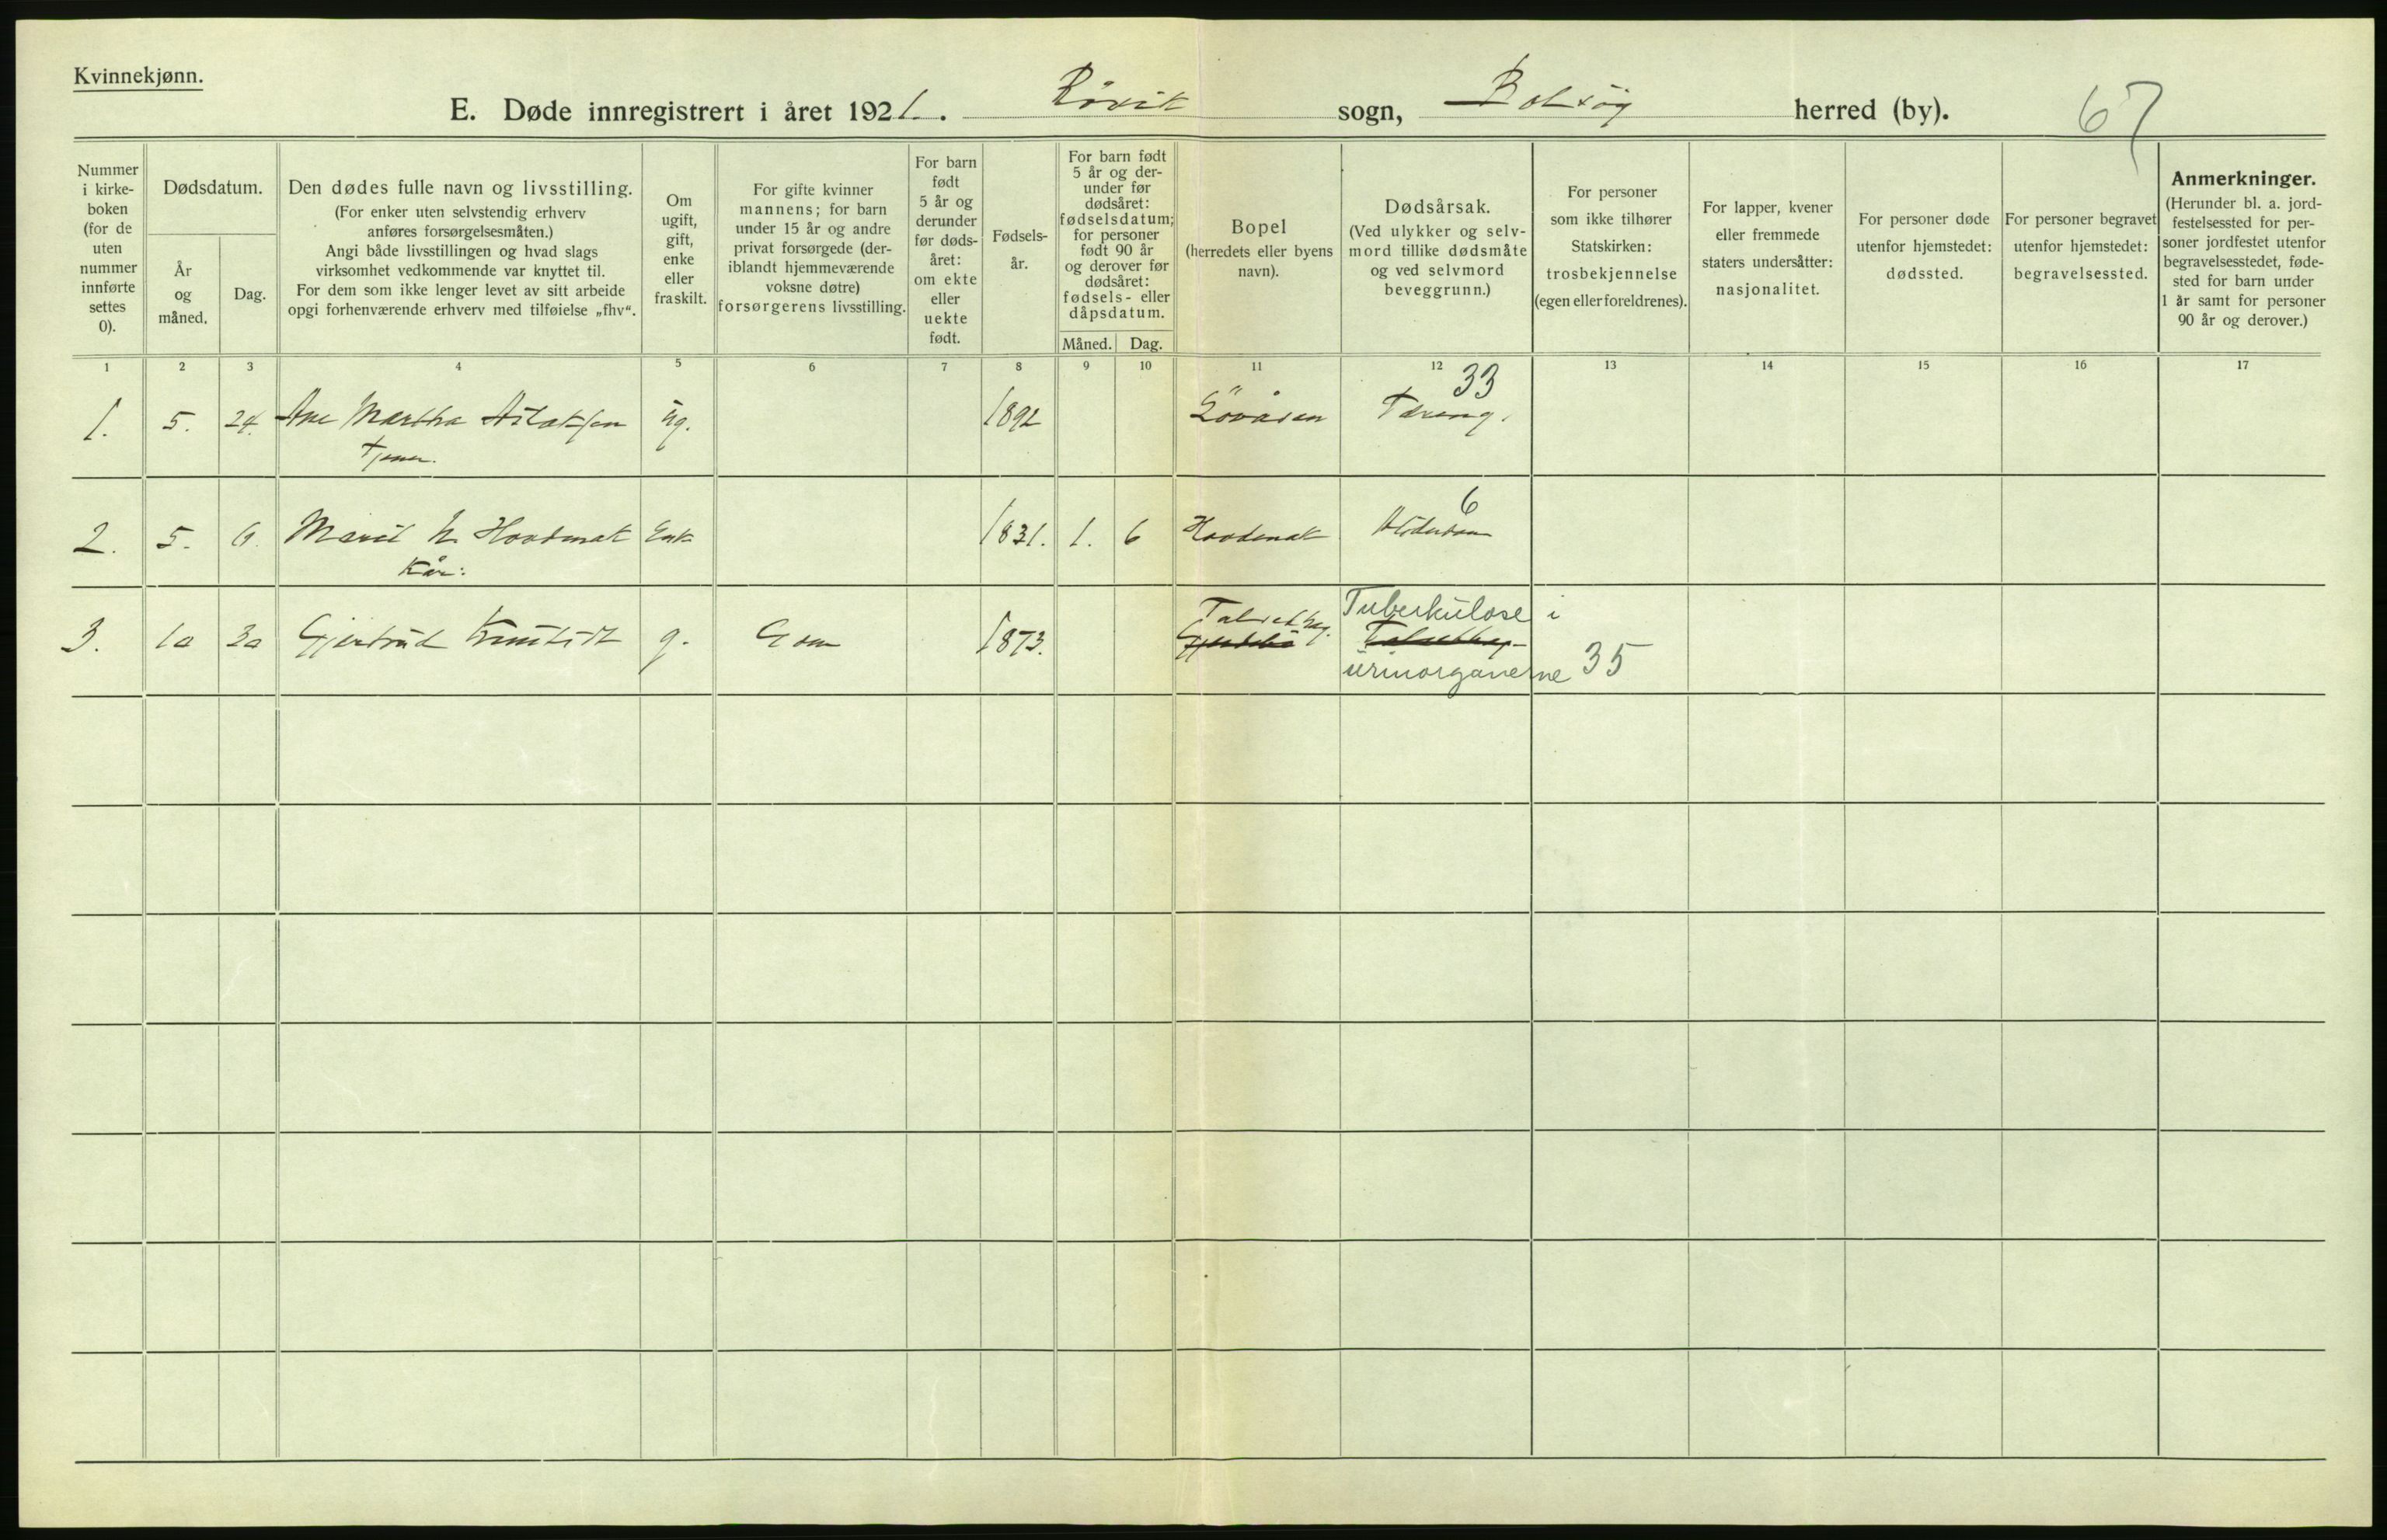 Kvinnekjønn.
E. Døde innregistrert i året 1921. Røvik sogn, Bolsøy herred (by). 67
Nummer i kirkeboken (for de uten nummer innførte settes 0).
Dødsdatum.
År og måned.
Dag.
Den dødes fulle navn og livsstilling.
(For enker uten selvstendig erhverv
anføres forsørgelsesmåten.)
Angi både livsstillingen og hvad slags
virksomhet vedkommende var knyttet til.
For dem som ikke lenger levet av sitt arbeide
opgi forhenværende erhverv med tilføielse „fhv“.
Om ugift, gift, enke eller fraskilt.
For gifte kvinner
mannens; for barn
under 15 år og andre
privat forsørgede (der-
iblandt hjemmeværende
voksne døtre)
forsørgerens livsstilling.
For barn født 5 år og derunder før døds-året: om ekte eller uekte født.
Fødsels-år.
For barn født
5 år og der-
under før
dødsåret:
fødselsdatum;
for personer
født 90 år
og derover før
dødsåret:
fødsels- eller
dåpsdatum.
Måned. Dag.
Bopel
(herredets eller byens
navn).
Dødsårsak.
(Ved ulykker og selv-
mord tillike dødsmåte
og ved selvmord
beveggrunn.)
For personer
som ikke tilhører
Statskirken:
trosbekjennelse
(egen eller foreldrenes).
For lapper, kvener
eller fremmede
staters undersåtter:
nasjonalitet.
For personer døde
utenfor hjemstedet:
dødssted.
For personer begravet
utenfor hjemstedet:
begravelsessted.
Anmerkninger.
(Herunder bl. a. jord-
festelsessted for per-
soner jordfestet utenfor
begravelsesstedet, føde-
sted for barn under
1 år samt for personer
90 år og derover.)
1 2 3 4 5 6 7 8 9 10 11 12 13 14 15 16 17
33
1. 5. 24. Ane Martha Aslaksen ug. 1892 Lövåsen Tæring.
Tjener.
6
2. 5. Marit Hovdenak Enk 1831. 1. 6 Hovdenak
Kår:
Tuberkulose i
3. 10 30 Gjertrud g. 1873.
urinorganerne 35